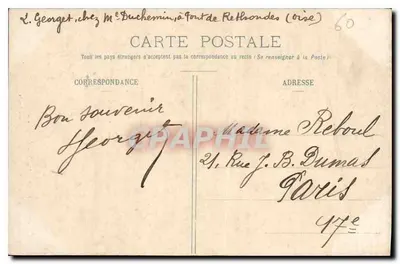 L. Georget, chez Mr Duchemin, à Pont de Rethondes (Oise)
60
CARTE POSTALE
Tous les pays étrangers n'acceptent pas la correspondance au recto (Se renseigner à la Poste).
CORRESPONDANCE
ADRESSE
Bon souvenir
Georget
Madame Reboul
21, Rue J. B. Dumas
Paris
17e
DELCAMPE